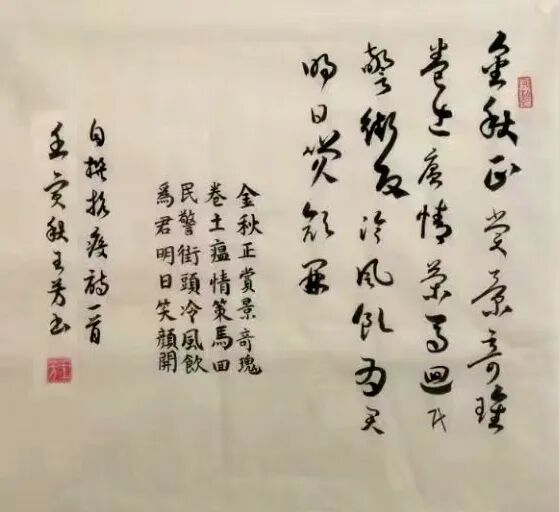 金秋正赏景奇瑰
卷土瘟情策马回民
警街头冷风飲为君
明日笑颜開
金秋正賞景奇瑰
卷土瘟情策馬回
民警街頭冷風飲
爲君明日笑顏開
自撰抗疫詩一首
壬寅秋王芳书